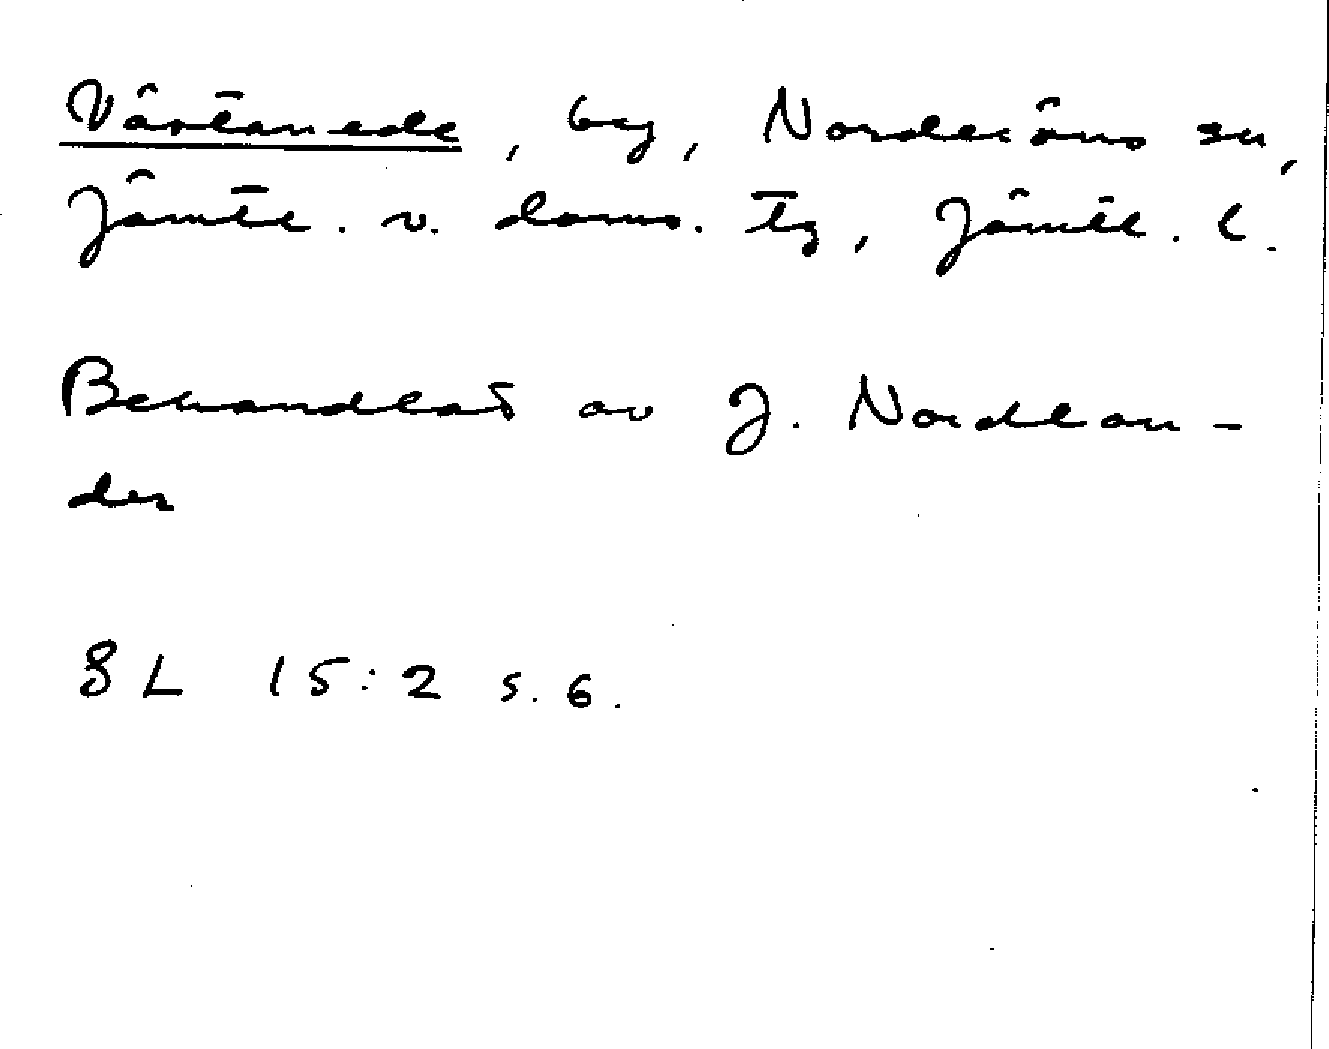 Västanede, by, Norderöns sn,
Jämtl. v. doms. tg, Jämtl. l.
Behandlat av J. Nordlan-
der
SL 15:2 s. 6.